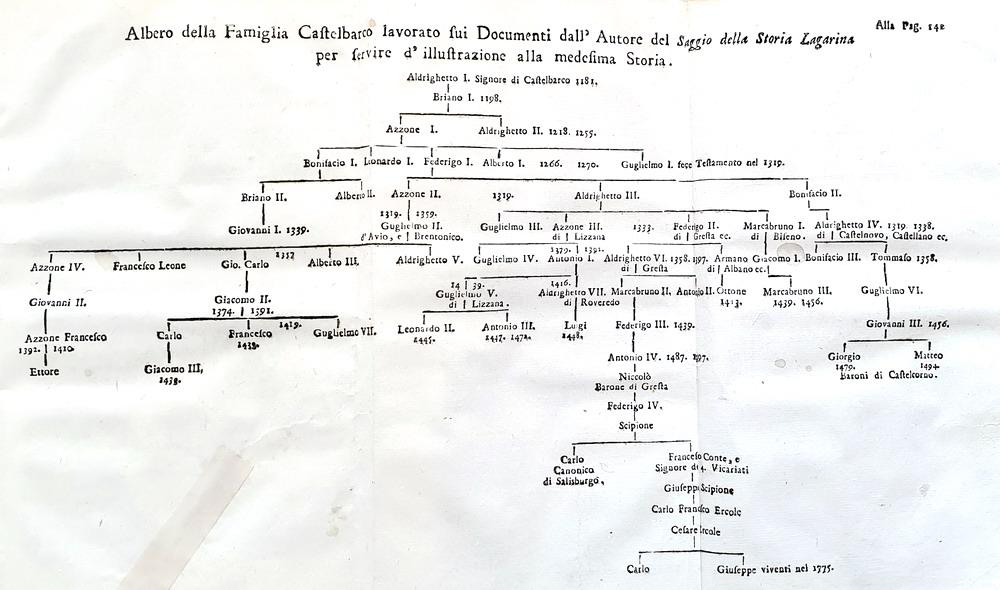 Alla Pag. 142
Albero della Famiglia Castelbarco lavorato sui Documenti dall' Autore del Saggio della Storia Lagarina
per servire d' illustrazione alla medesima Storia.
Aldrighetto I. Signore di Castelbarco 1181.
Briano I. 1198.
Azzone I. Aldrighetto II. 1218. 1255.
Bonifacio I. Leonardo I. Federigo I. Alberto I. 1266. 1270. Guglielmo I. fece Testamento nel 1319.
Briano II. Alberto II. Azzone II. 1319. Aldrighetto III. Bonifacio II.
1319. 1359.
Giovanni I. 1339. Guglielmo II. Guglielmo III. Azzone III. 1333. Federigo II. Marcabruno I. Aldrighetto IV. 1319. 1338.
d'Avio, e Brentonico. di Lizzana di Gresta ec. di Biseno. di Castelnovo, Castellano ec.
1357 1379. 1391.
Azzone IV. Francesco Leone Gio. Carlo Alberto III. Aldrighetto V. Guglielmo IV. Antonio I. Aldrighetto VI. 1358. 1397. Armano Giacomo I. Bonifacio III. Tommaso 1358.
di Gresta di Albano ec.
14 39. 1416.
Giovanni II. Giacomo II. Guglielmo V. Aldrighetto VII. Marcabruno II. Antonio II. Ottone Marcabruno III. Guglielmo VI.
1374. 1391. di Lizzana. di Roveredo 1413. 1439. 1456.
1419.
Azzone Francesco Carlo Francesco Guglielmo VII. Leonardo II. Antonio III. Luigi Federigo III. 1439. Giovanni III. 1456.
1392. 1410. 1438. 1445. 1447. 1472. 1448.
Ettore Giacomo III, Antonio IV. 1487. Giorgio Matteo
1438. 1479. 1494.
Niccolò Baroni di Castelcorno.
Barone di Gresta
Federigo IV.
Scipione
Carlo Francesco Conte, e
Canonico Signore di 4. Vicariati
di Salisburgo,
Giuseppe Scipione
Carlo Francesco Ercole
Cesare Ercole
Carlo Giuseppe viventi nel 1775.